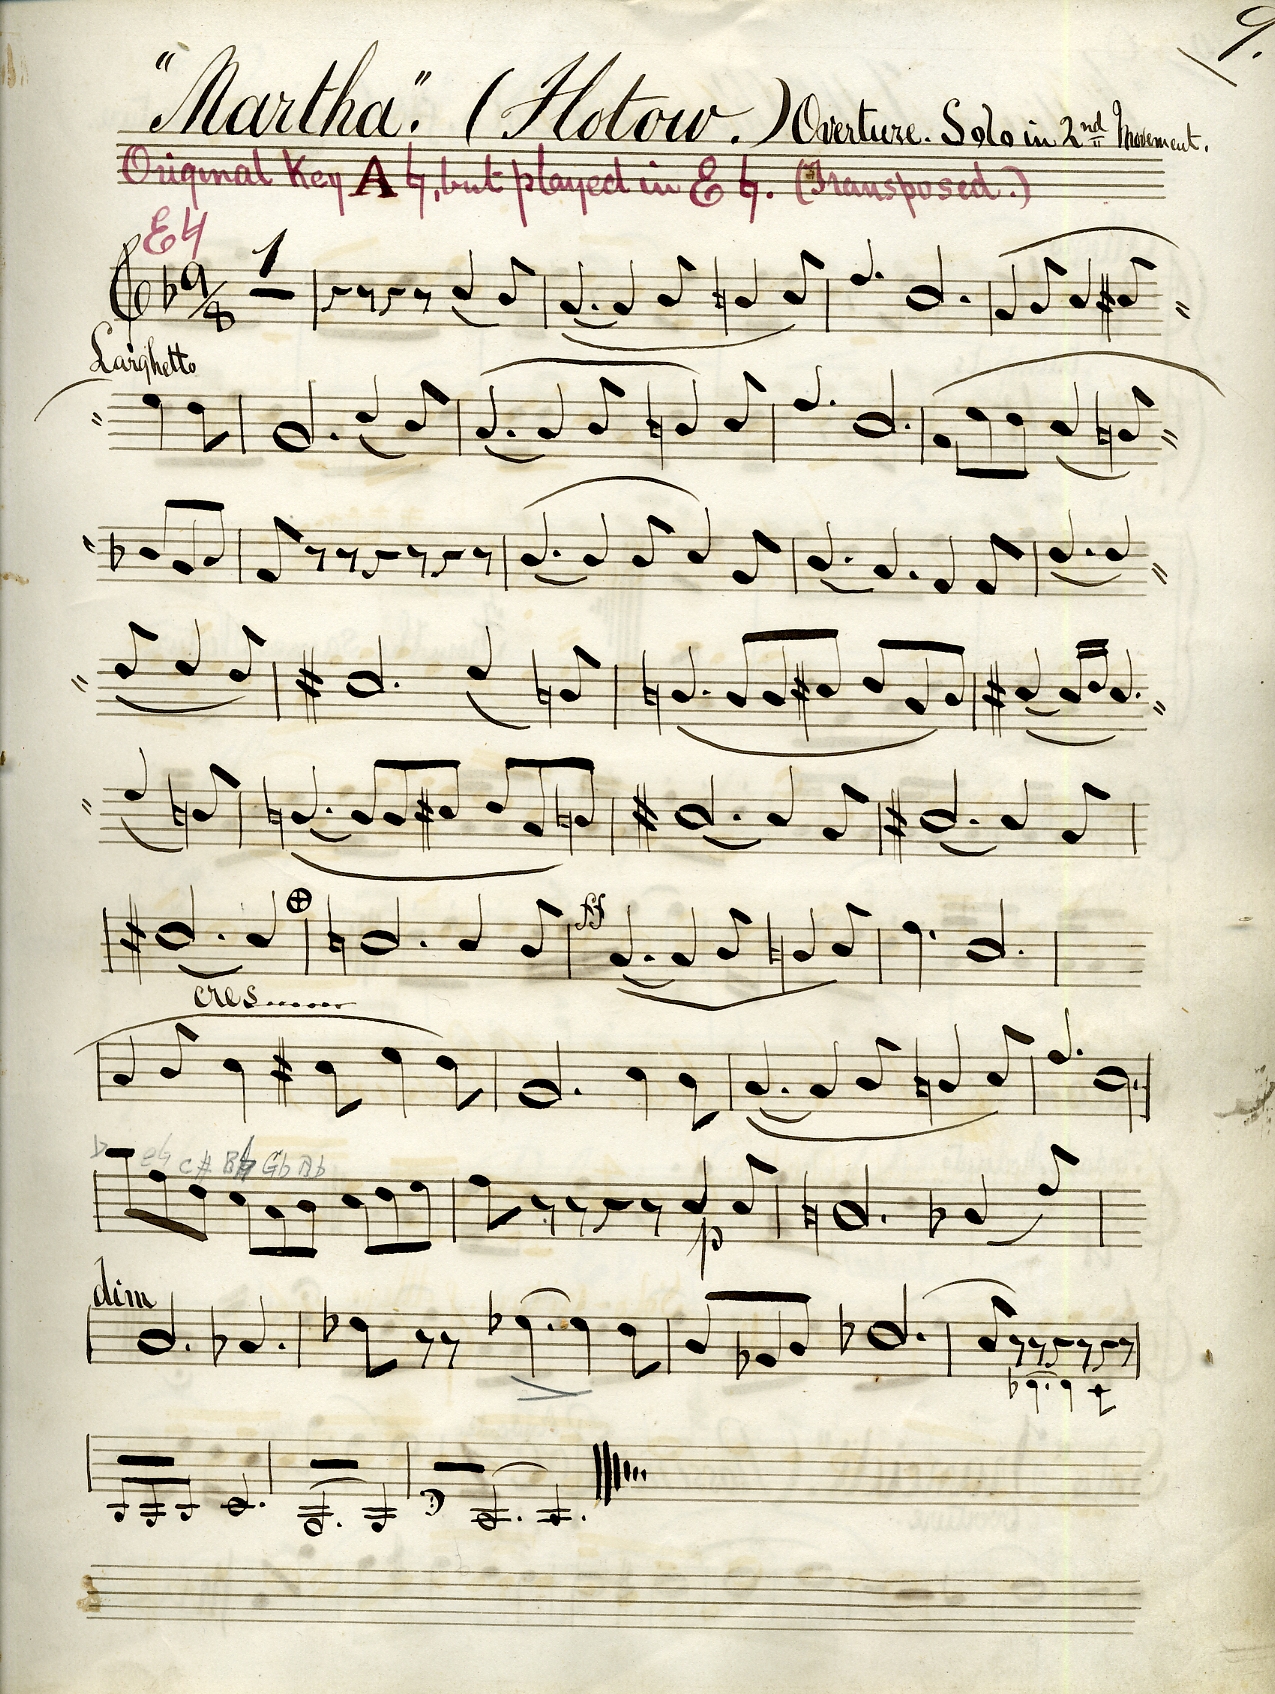 9.
"Martha". (Flotow.) Overture. Solo in 2nd Movement.
Original Key A ♮, but played in E ♮. (Transposed.)
E♮
9/8
1
Larghetto
ff
cres......
e♮ c# B♮ G♭ A♭
p
dim